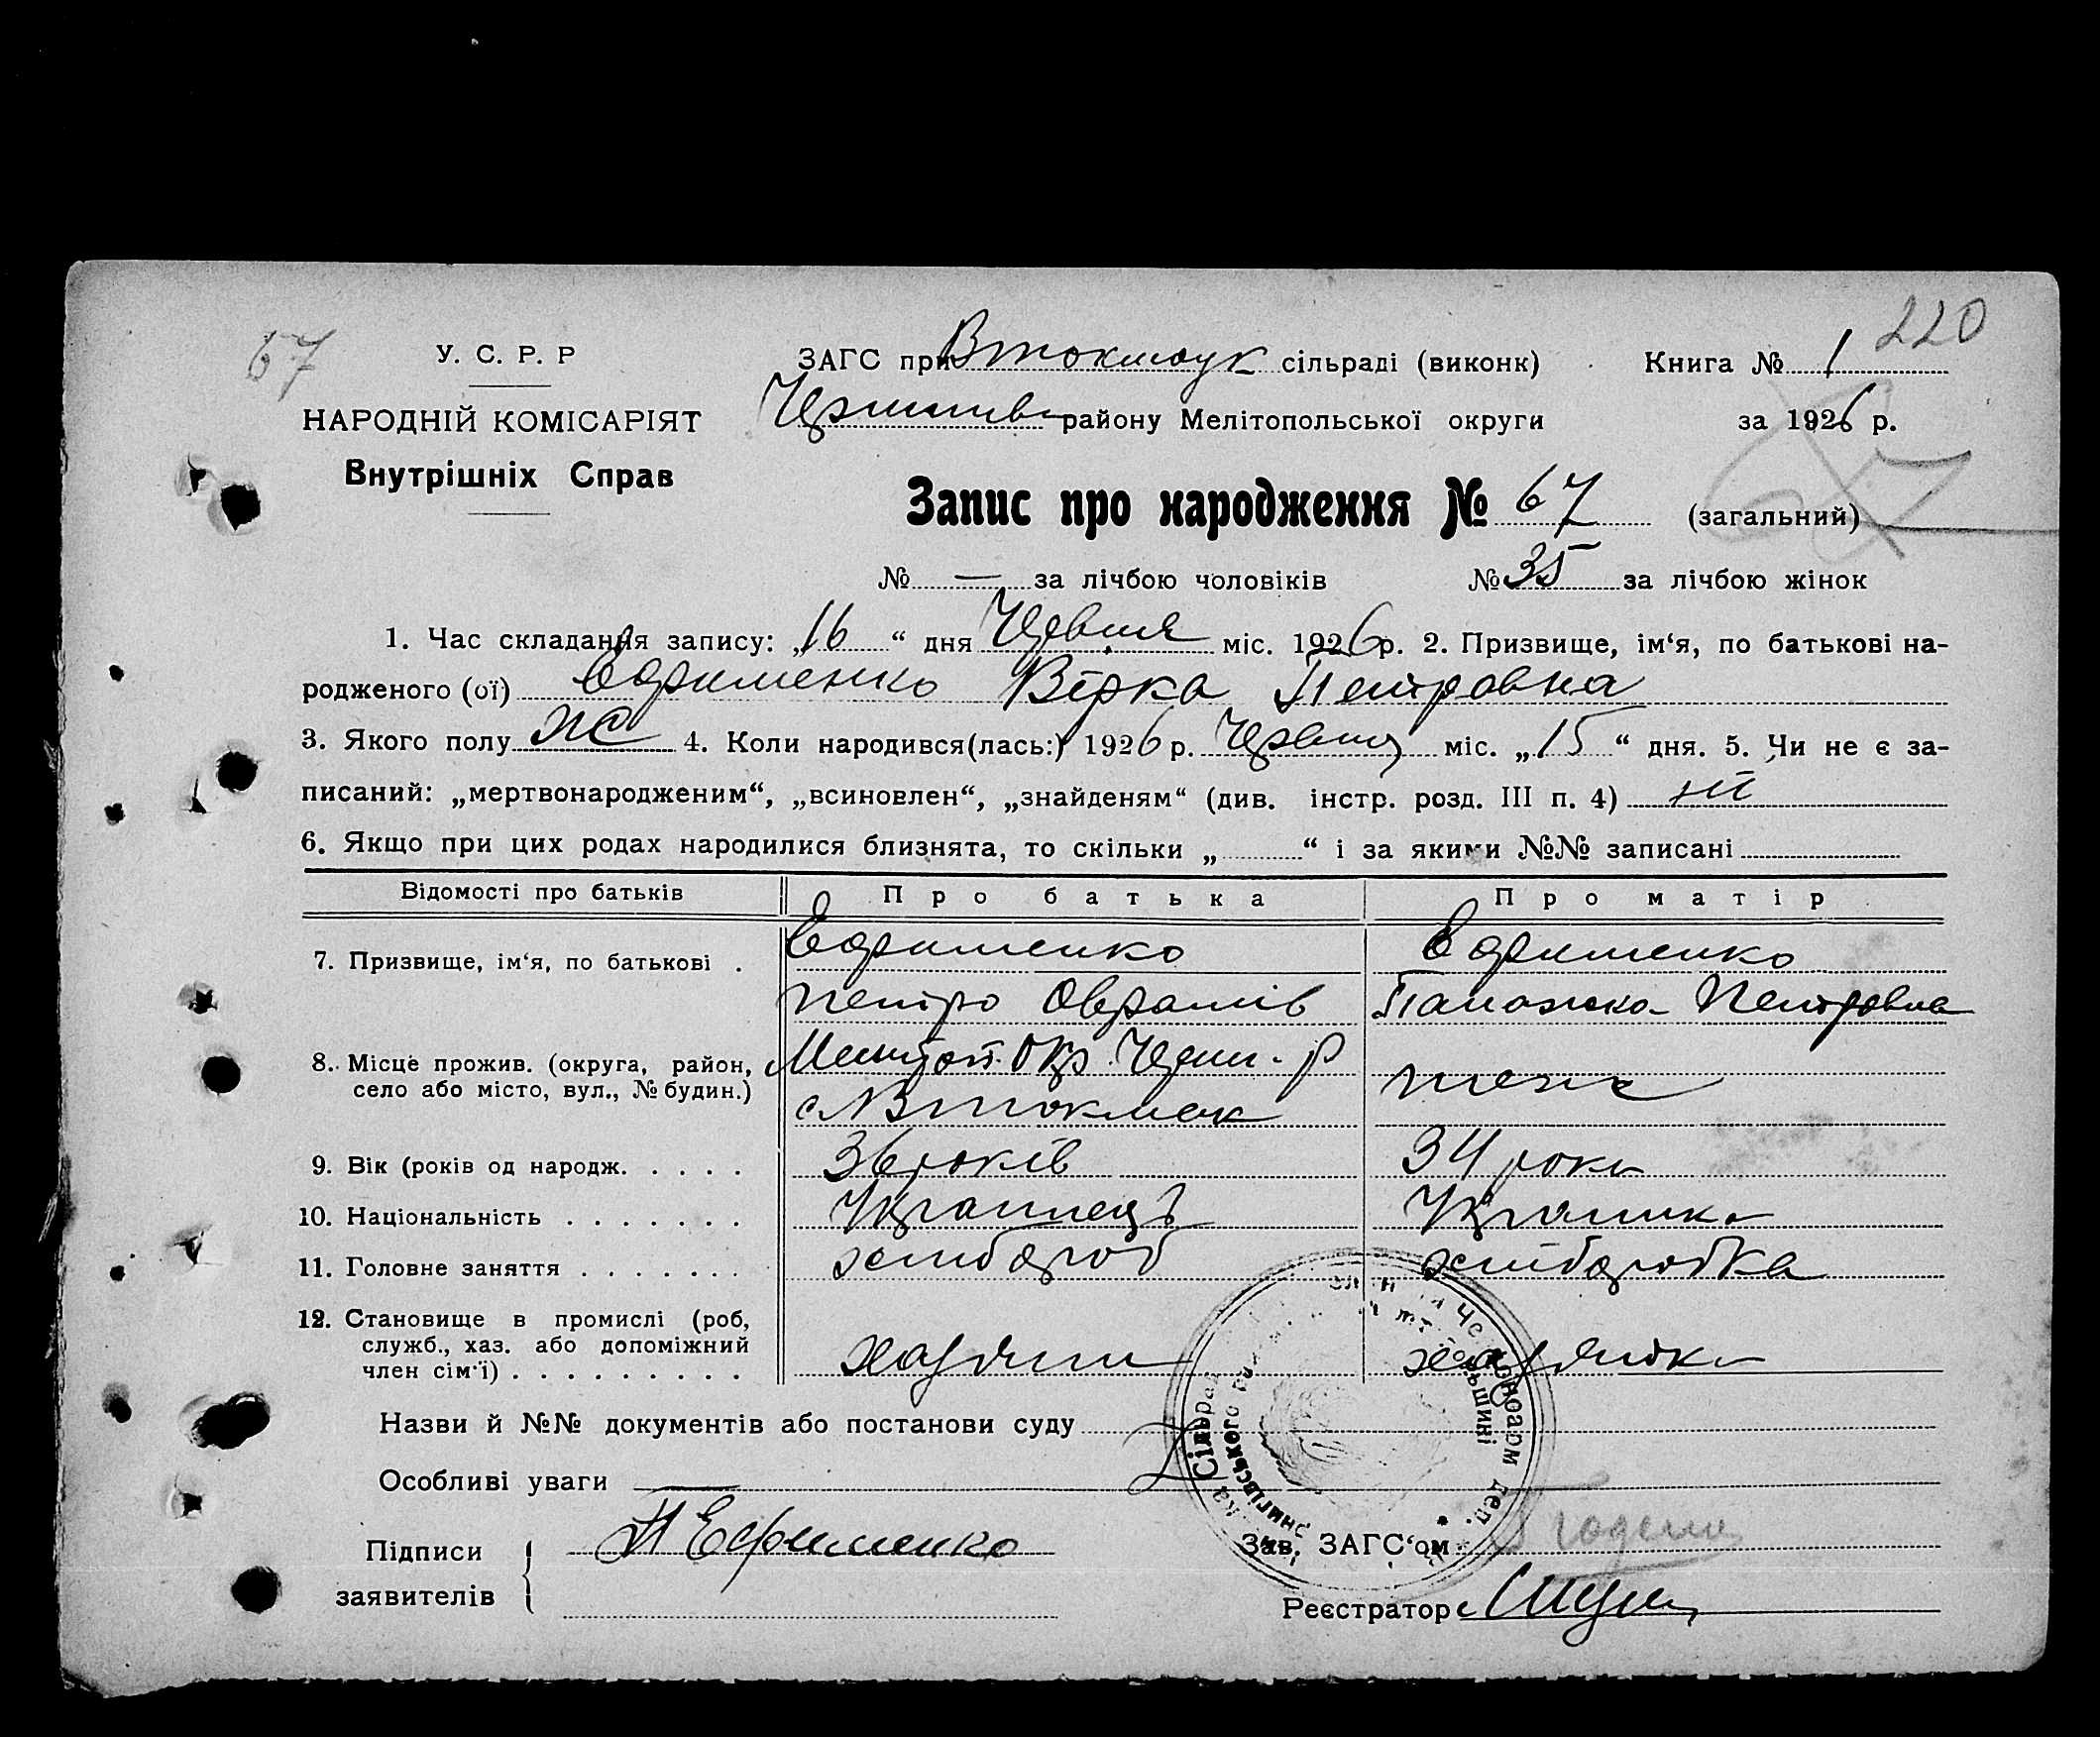 67
220
У. С. Р. Р
ЗАГС при Втокмоук сільраді (виконк)
Книга № 1
НАРОДНІЙ КОМІСАРІЯТ
району Мелітопольської округи
за 1926 р.
Внутрішніх Справ
Запис про народження № 67 (загальний)
67
№ — за лічбою чоловіків
№ 35 за лічбою жінок
1. Час складання запису: „16“ дня Червня міс. 1926 р. 2. Призвище, ім‘я, по батькові на-
родженого (ої) Єфрименко Вірка Петровна
3. Якого полу ж 4. Коли народився(лась:) 1926 р. Червня міс. „15“ дня. 5. Чи не є за-
писаний: „мертвонародженим“, „всиновлен“, „знайденям“ (див. інстр. розд. III п. 4) ні
6. Якщо при цих родах народилися близнята, то скільки „ “ і за якими №№ записані
Відомості про батьків
Про батька
Про матір
7. Призвище, ім‘я, по батькові .
Єфрименко
Єфрименко
Петро Оврамів
Панажка Петровна
8. Місце прожив. (округа, район,
село або місто, вул., № будин.)
Меліт Окр. Черн. р
с Втокмак
теж
9. Вік (років од народж. . . . .
36 років
34 роки
10. Національність . . . . . . .
Українець
Українка
11. Головне заняття . . . . . .
хлібороб
хліборобка
12. Становище в промислі (роб,
служб., хаз. або допоміжний
член сім‘ї) . . . . . . . . .
хазяїн
хазяйка
Назви й №№ документів або постанови суду
Особливі уваги
Підписи
заявителів
П Ефименко
Зав. ЗАГС‘ом
Реєстратор